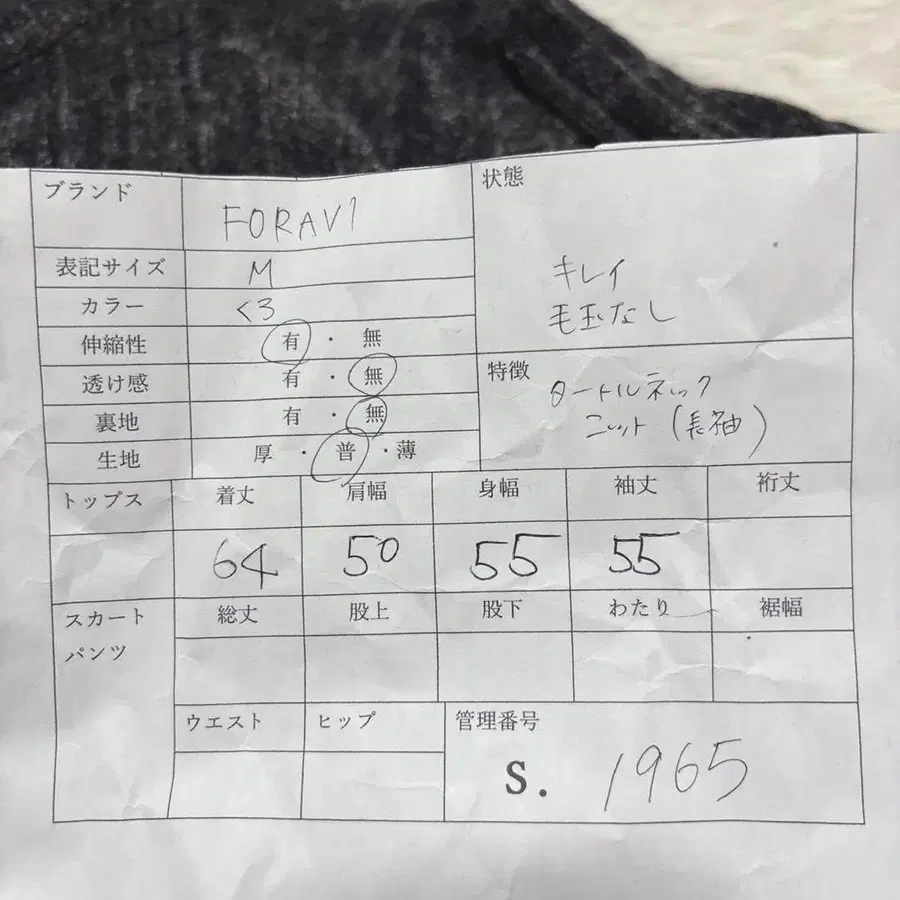 ブランド FORAVI
表記サイズ M
カラー くろ
伸縮性 有 ・ 無
透け感 有 ・ 無
裏地 有 ・ 無
生地 厚 ・ 普 ・ 薄
状態
キレイ
毛玉なし
特徴
タートルネック
ニット (長袖)
トップス 着丈 肩幅 身幅 袖丈 裄丈
64 50 55 55
スカート 総丈 股上 股下 わたり 裾幅
パンツ
ウエスト ヒップ 管理番号
S. 1965